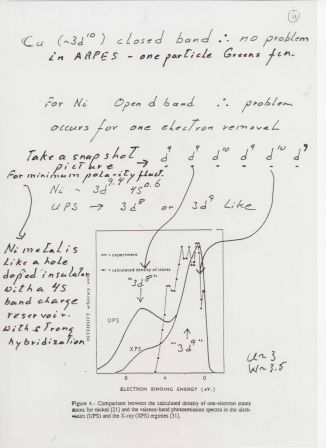 11
Cu (~3d¹⁰) closed band ∴ no problem
in ARPES - one particle Greens fcn.
For Ni Open d band ∴ problem
occurs for one electron removal
Take a snapshot picture → d⁹ d⁹ d¹⁰ d⁹ d¹⁰ d⁹
For minimum polarity fluct.
Ni ~ 3d⁹·⁴ 4S⁰·⁶
UPS → 3d⁸ or 3d⁹ Like
Ni metal is
Like a hole
doped insulator
with a 4S
band charge
reservoir.
with strong
hybridization
INTENSITY arbitrary
= experiment
= calculated density of states
"3d⁸"
UPS
XPS
"3d⁹"
8 4 0
ELECTRON BINDING ENERGY (eV.)
U~3
W~3.5
Figure 4.- Comparison between the calculated density of one-electron states
for nickel [21] and the valence-band photoemission spectra in the ultra-
violet (UPS) and the X-ray (XPS) regimes [31].